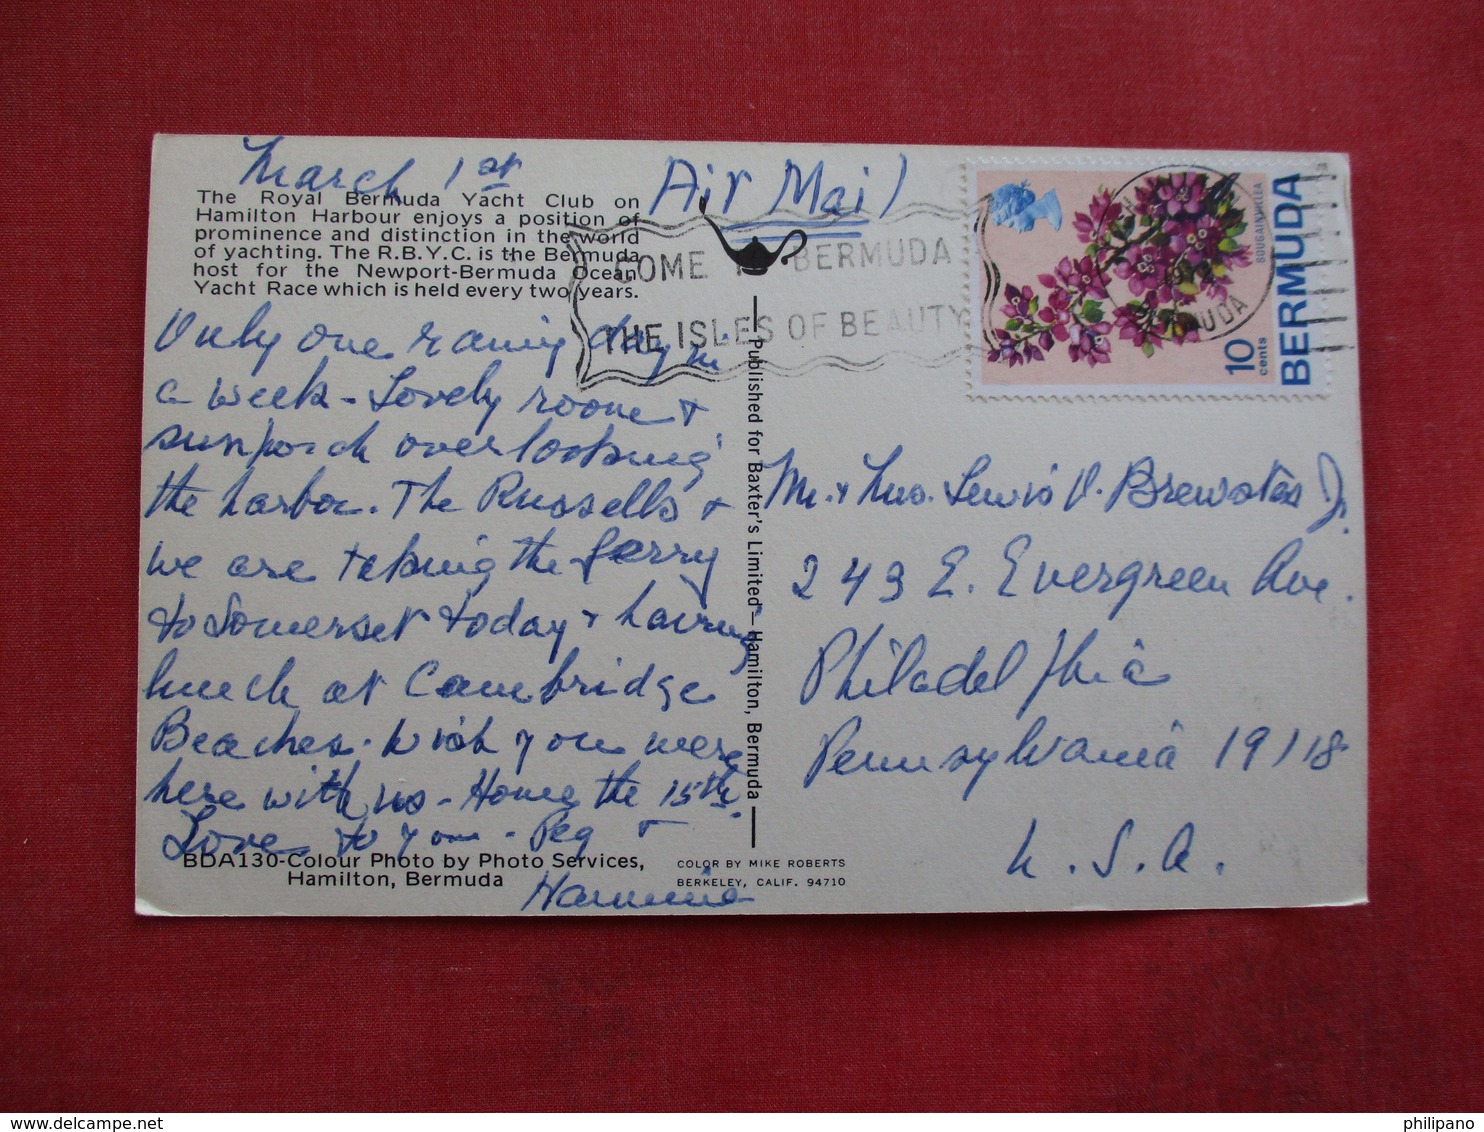 March 1st
Air Mail
The Royal Bermuda Yacht Club on
Hamilton Harbour enjoys a position of
prominence and distinction in the world
of yachting. The R.B.Y.C. is the Bermuda
host for the Newport-Bermuda Ocean
Yacht Race which is held every two years.
Only one rainy day in
a week - Lovely room +
sunporch overlooking
the harbor. The Russells +
we are taking the ferry
to Somerset today + having
lunch at Cambridge
Beaches. Wish you were
here with us - Home the 15th.
Love to you - Peg +
Hammie
BDA130-Colour Photo by Photo Services,
Hamilton, Bermuda
COLOR BY MIKE ROBERTS
BERKELEY, CALIF. 94710
Published for Baxter's Limited - Hamilton, Bermuda
COME TO BERMUDA
THE ISLES OF BEAUTY
BERMUDA
10 cents
BOUGAINVILLEA
Mr. + Mrs. Lewis V. Brewster Jr.
243 E. Evergreen Ave.
Philadelphia
Pennsylvania 19118
U.S.A.
philipano